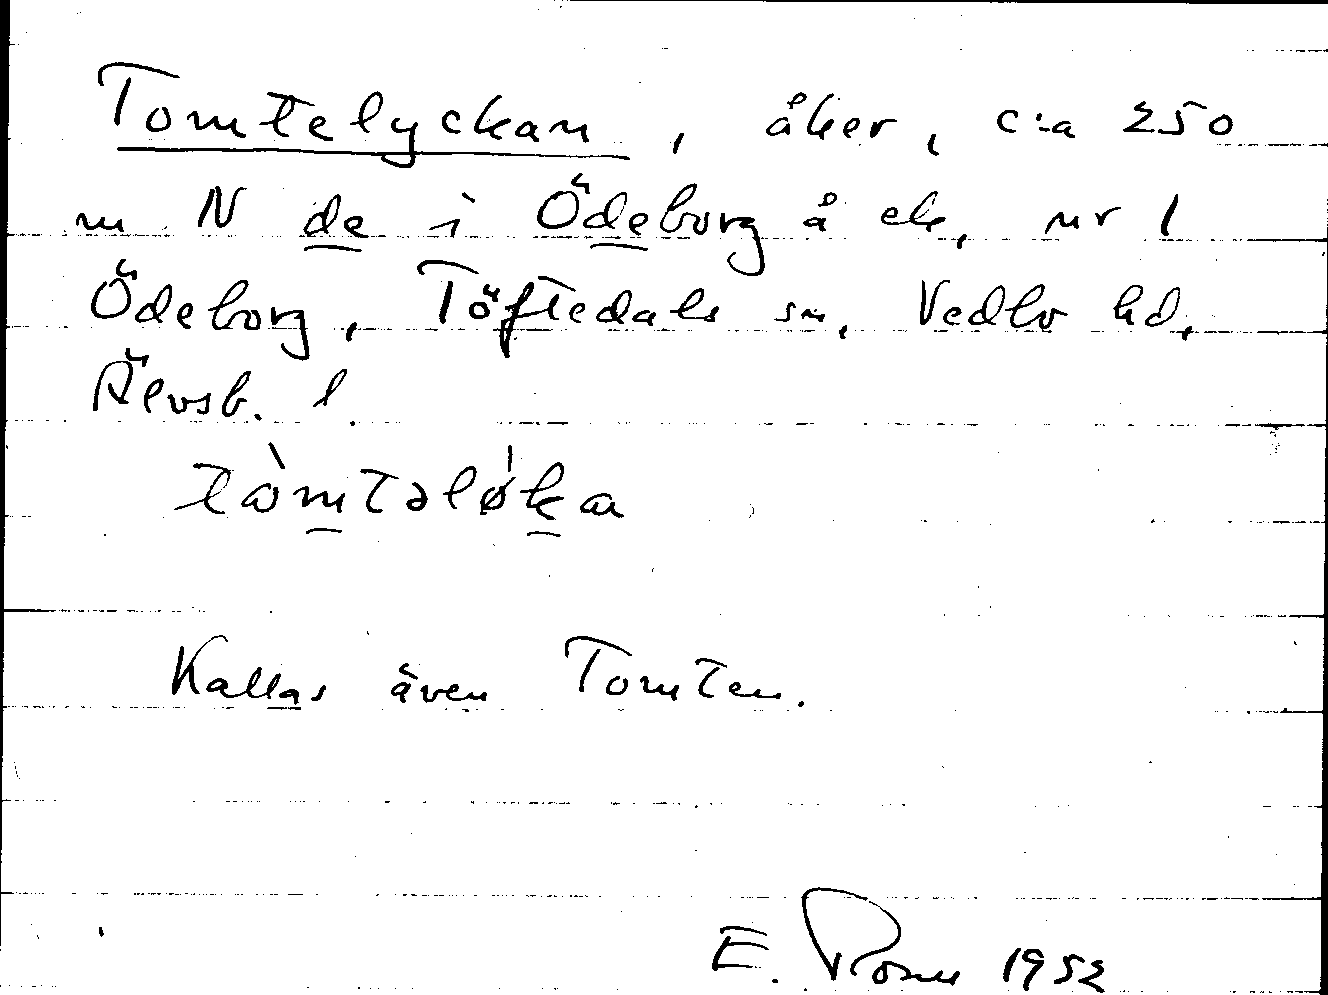 Tomtelyckan, åker, c:a 250
m N de i Ödeborg å ek, nr 1
Ödeborg, Töftedals sn, Vedbo hd,
Älvsb. l.
tòmtəlø̍ka
Kallas även Tomten.
E. 1952